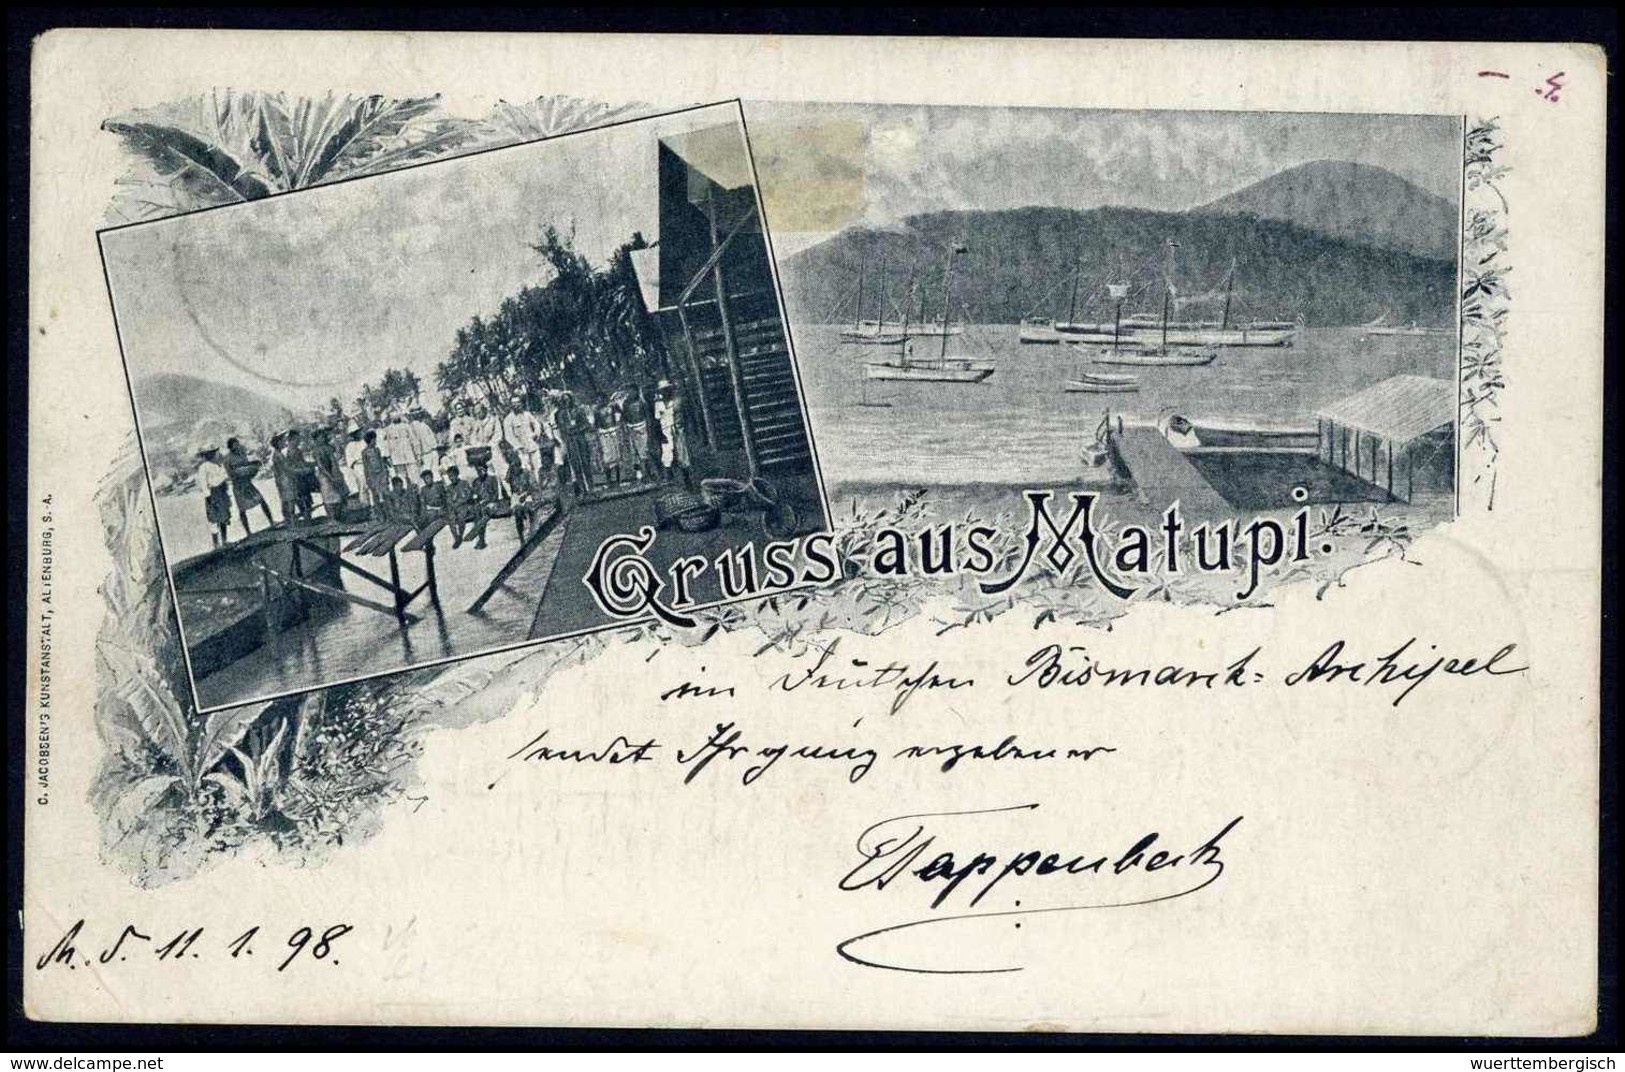 Gruss aus Matupi.
im Deutschen Bismarck-Archipel
sendet Ihr ganz ergebener
Tappenbeck
M. d. 11. 1. 98.
C. JACOBSEN'S KUNSTANSTALT, ALTENBURG, S.-A.
www.delcampe.net
wuerttembergisch